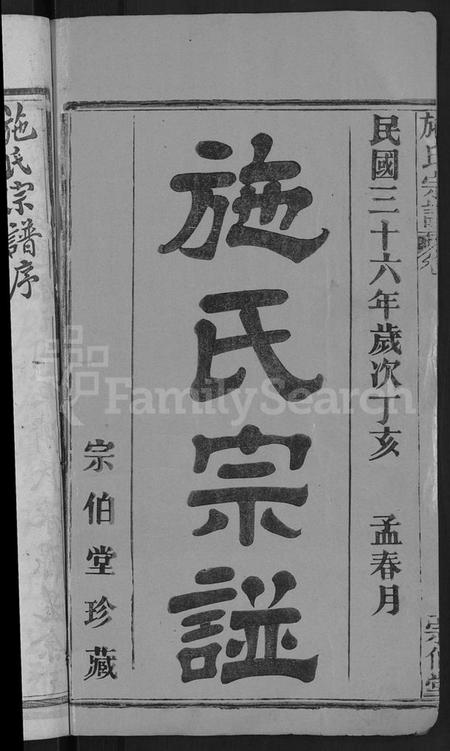 民國三十六年歲次丁亥 孟春月
施氏宗譜
宗伯堂珍藏
施氏宗譜
宗伯堂
施氏宗譜序
FamilySearch